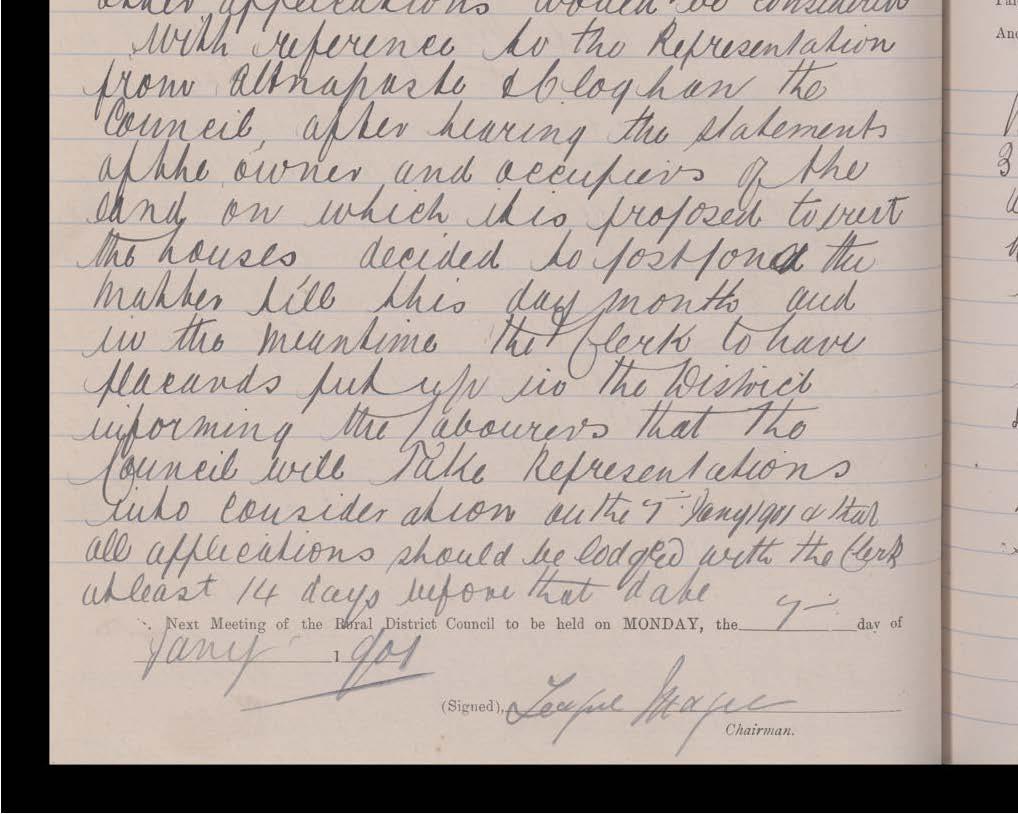 other applications would be considered
With reference to the Representation
from Altnapaste & Cloghan the
Council, after hearing the statements
of the owner and occupiers of the
land on which it is proposed to erect
the houses decided to postpone the
matter till this day month and
in the meantime the Clerk to have
placards put up in the District
informing the labourers that the
Council will take Representations
into consideration on the 7th Jany 1901 & that
all applications should be lodged with the Clerk
at least 14 days before that date
Next Meeting of the Rural District Council to be held on MONDAY, the 7th day of
Jany 1901
(Signed), Teague Magee
Chairman.